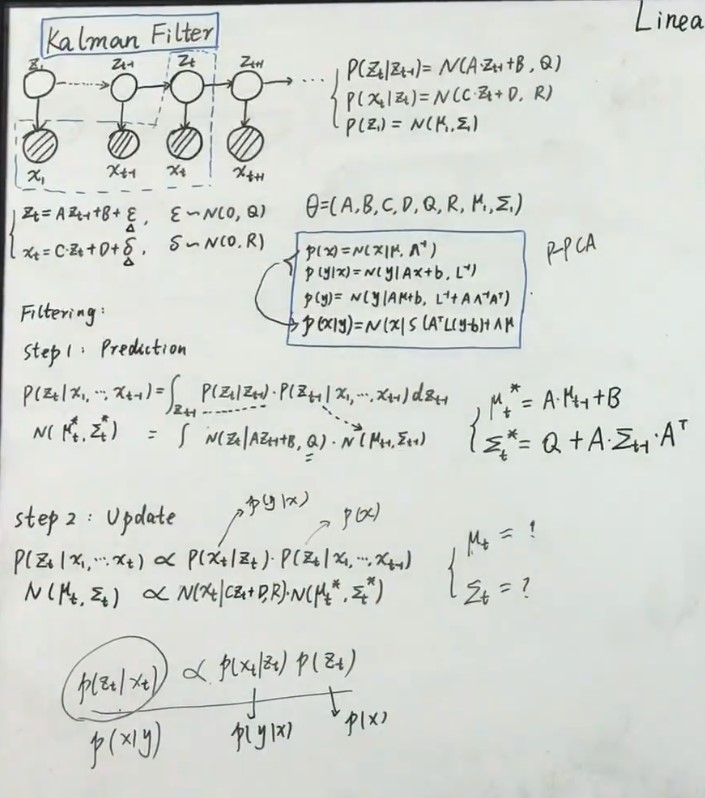 Linea
Kalman Filter
z₁ zₜ₋₁ zₜ zₜ₊₁ ...
x₁ xₜ₋₁ xₜ xₜ₊₁
P(zₜ|zₜ₋₁) = N(A·zₜ₋₁+B, Q)
P(xₜ|zₜ) = N(C·zₜ+D, R)
P(z₁) = N(μ₁, Σ₁)
zₜ = A zₜ₋₁+B+ε, ε ∽ N(0, Q)
xₜ = C·zₜ+D+δ, δ ∽ N(0, R)
θ=(A, B, C, D, Q, R, μ₁, Σ₁)
p(x)=N(x|μ, Λ⁻¹)
p(y|x)=N(y|Ax+b, L⁻¹)
p(y)= N(y|Aμ+b, L⁻¹+AΛ⁻¹Aᵀ)
p(x|y)=N(x|S(AᵀL(y-b)+Λμ
P-PCA
Filtering:
Step 1: Prediction
P(zₜ|x₁, ..., xₜ₋₁)=∫zₜ₋₁ P(zₜ|zₜ₋₁)·P(zₜ₋₁|x₁, ..., xₜ₋₁)dzₜ₋₁
N(μₜ*, Σₜ*) = ∫ N(zₜ|Azₜ₋₁+B, Q)·N(μₜ₋₁, Σₜ₋₁)
μₜ* = A·μₜ₋₁+B
Σₜ* = Q + A·Σₜ₋₁·Aᵀ
step 2: Update
p(y|x) p(x)
P(zₜ|x₁, ...xₜ) ∝ P(xₜ|zₜ)·P(zₜ|x₁, ..., xₜ₋₁)
N(μₜ, Σₜ) ∝ N(xₜ|Czₜ+D,R)·N(μₜ*, Σₜ*)
μₜ = ?
Σₜ = ?
p(zₜ|xₜ) ∝ p(xₜ|zₜ) p(zₜ)
p(x|y) p(y|x) p(x)